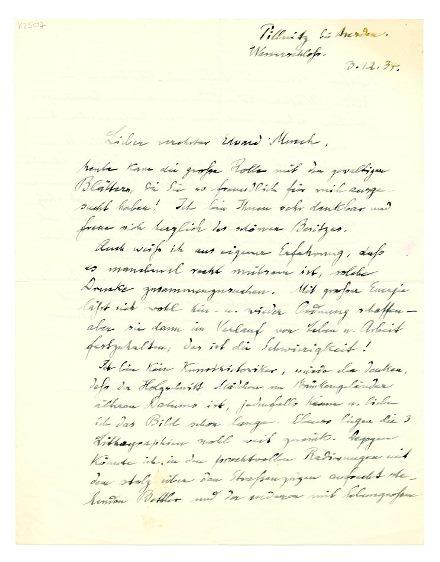 K2507
Pillnitz bei Dresden.
Wasserschloss.
3.12.35.
Lieber verehrter Edvard Munch,
heute kam die große Rolle mit den gewaltigen
Blättern, die Sie so freundlich für mich ausge-
sucht haben! Ich bin Ihnen sehr dankbar und
freue mich herzlich des schönen Besitzes.
Auch weiß ich aus eigener Erfahrung, daß
es manchmal recht mühsam ist, solche
Drucke zusammenzusuchen. Mit großer Energie
läßt sich wohl hin- u. wieder Ordnung schaffen –
aber sie dann im Verlauf von Leben u. Arbeit
festzuhalten, das ist die Schwierigkeit!
Ich bin kein Kunsthistoriker, würde da denken,
daß der Holzschnitt Mädchen am Brückengeländer
älteren Datums ist, jedenfalls kenne u. liebe
ich das Bild schon lange. Ebenso liegen die 3
Lithographien wohl weit zurück.
könnte ich in den prachtvollen Radierungen mit
dem stolz über den Strassenzügen aufrecht ste-
henden Bettler und der anderen mit